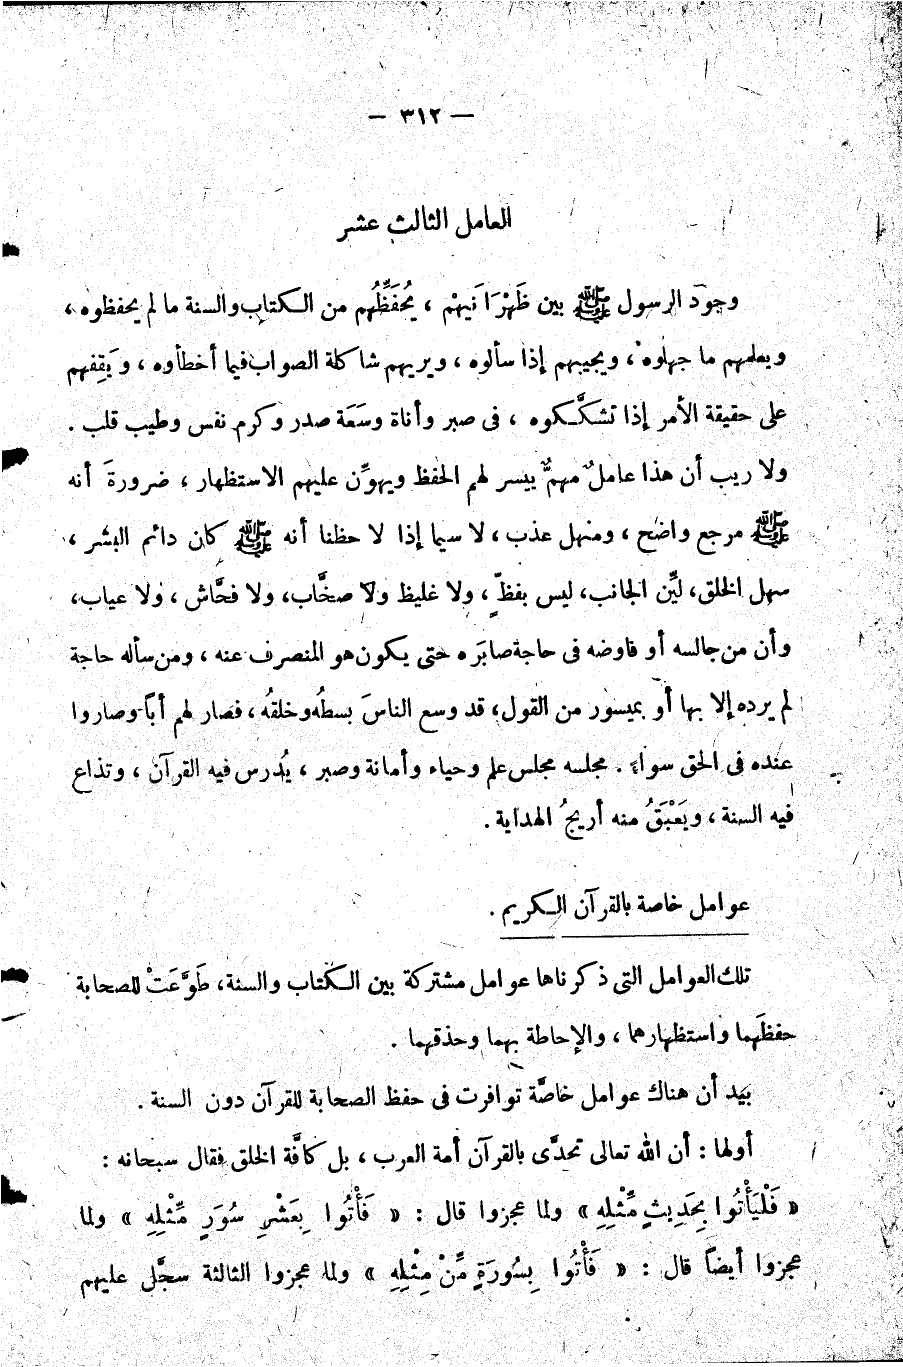 — ٣١٢ —
العامل الثالث عشر
وجود الرسول ﷺ بين ظَهْرَانَيهْم ، يُحَفِّظُهم من الكتاب والسنة ما لم يحفظوه ،
ويعلمهم ما جهلوه ، ويجيبهم إذا سألوه ، ويريهم شاكلة الصواب فيما أخطأوه ، ويَقِفهم
على حقيقة الأمر إذا تشكَّكوه ، فى صبر وأناة وسَعَة صدر وكرم نفس وطيب قلب .
ولا ريب أن هذا عاملٌ مهمٌّ ييسر لهم الحفظ ويهوِّن عليهم الاستظهار ، ضرورةَ أنه
ﷺ مرجع واضح ، ومنهل عذب ، لا سيما إذا لاحظنا أنه ﷺ كان دائم البشر ،
سهل الخلق، ليِّن الجانب، ليس بفظّ ، ولا غليظ ولا صخَّاب، ولا فحَّاش ، ولا عياب،
وأن من جالسه أو فاوضه فى حاجة صابَره حتى يكون هو المنصرف عنه ، ومن سأله حاجة
لم يرده إلا بها أو بميسور من القول، قد وسع الناسَ بسطُه وخلقُه ، فصار لهم أباً وصاروا
عنده فى الحق سواء . مجلسه مجلس علم وحياء وأمانة وصبر ، يُدرس فيه القرآن ، وتذاع
فيه السنة ، ويَعْبَقُ منه أريجُ الهداية .
عوامل خاصة بالقرآن الكريم .
تلك العوامل التى ذكرناها عوامل مشتركة بين الكتاب والسنة، طَوَّعَتْ للصحابة
حفظَهما واستظهارهما ، والإحاطة بهما وحذقهما .
بيد أن هناك عوامل خاصَّة توافرت فى حفظ الصحابة للقرآن دون السنة .
أولها : أن الله تعالى تحدَّى بالقرآن أمة العرب ، بل كافَّة الخلق فقال سبحانه :
« فَلْيَأْتُوا بِحَدِيثٍ مِّثْلِهِ » ولما عجزوا قال : « فَأْتُوا بِعَشْرِ سُوَرٍ مِّثْلِهِ » ولما
عجزوا أيضاً قال : « فَأْتُوا بِسُورَةٍ مِّنْ مِثْلِهِ » ولما عجزوا الثالثة سجَّل عليهم